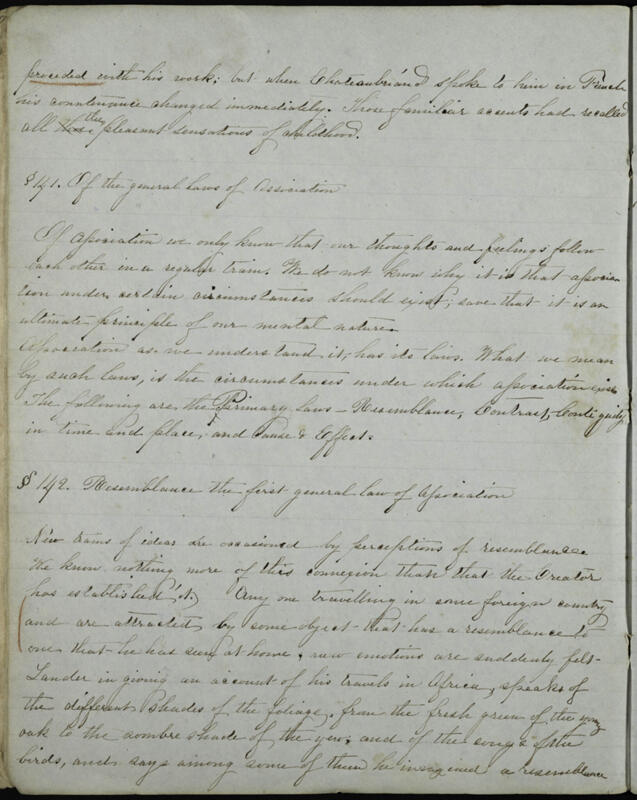 proceded with his work; but when Chateaubriand spoke to him in French
his countenance changed immediately. Those familiar accents had recalled
all the pleasant sensations of childhood.
§ 141. Of the general laws of Association
Of Association we only know that our thoughts and feelings follow
each other in a regular train. We do not know why it is that associa-
tion under certain circumstances should exist; save that it is an
ultimate principle of our mental nature.
Association as we understand it, has its laws. What we mean
by such laws, is the circumstances under which association exists
The following are the Primary laws – Resemblance, Contrast, Contiguity
in time and place, and Cause & Effect.
§ 142. Resemblance the first general law of Association
New trains of ideas are occasioned by perceptions of resemblance.
We know nothing more of this connexion than that the Creator
has established it. Any one travelling in some foreign country
and are attracted by some object that has a resemblance to
one that he has seen at home, new emotions are suddenly felt-
Lander in giving an account of his travels in Africa, speaks of
the different shades of the foliage, from the fresh green of the young
oak to the sombre shade of the yew; and of the songs of the
birds, and says among some of them he imagined a resemblance